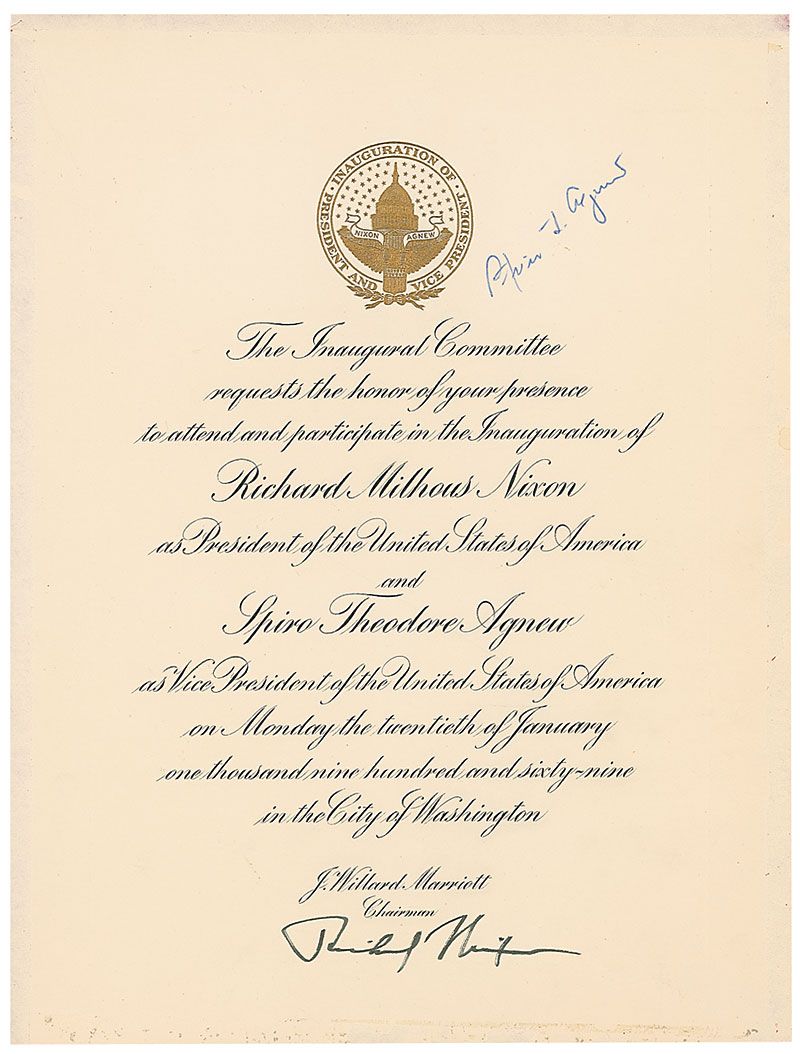 · INAUGURATION OF ·
PRESIDENT AND VICE PRESIDENT
NIXON AGNEW
Spiro T. Agnew
The Inaugural Committee
requests the honor of your presence
to attend and participate in the Inauguration of
Richard Milhous Nixon
as President of the United States of America
and
Spiro Theodore Agnew
as Vice President of the United States of America
on Monday the twentieth of January
one thousand nine hundred and sixty-nine
in the City of Washington
J. Willard Marriott
Chairman
Richard Nixon